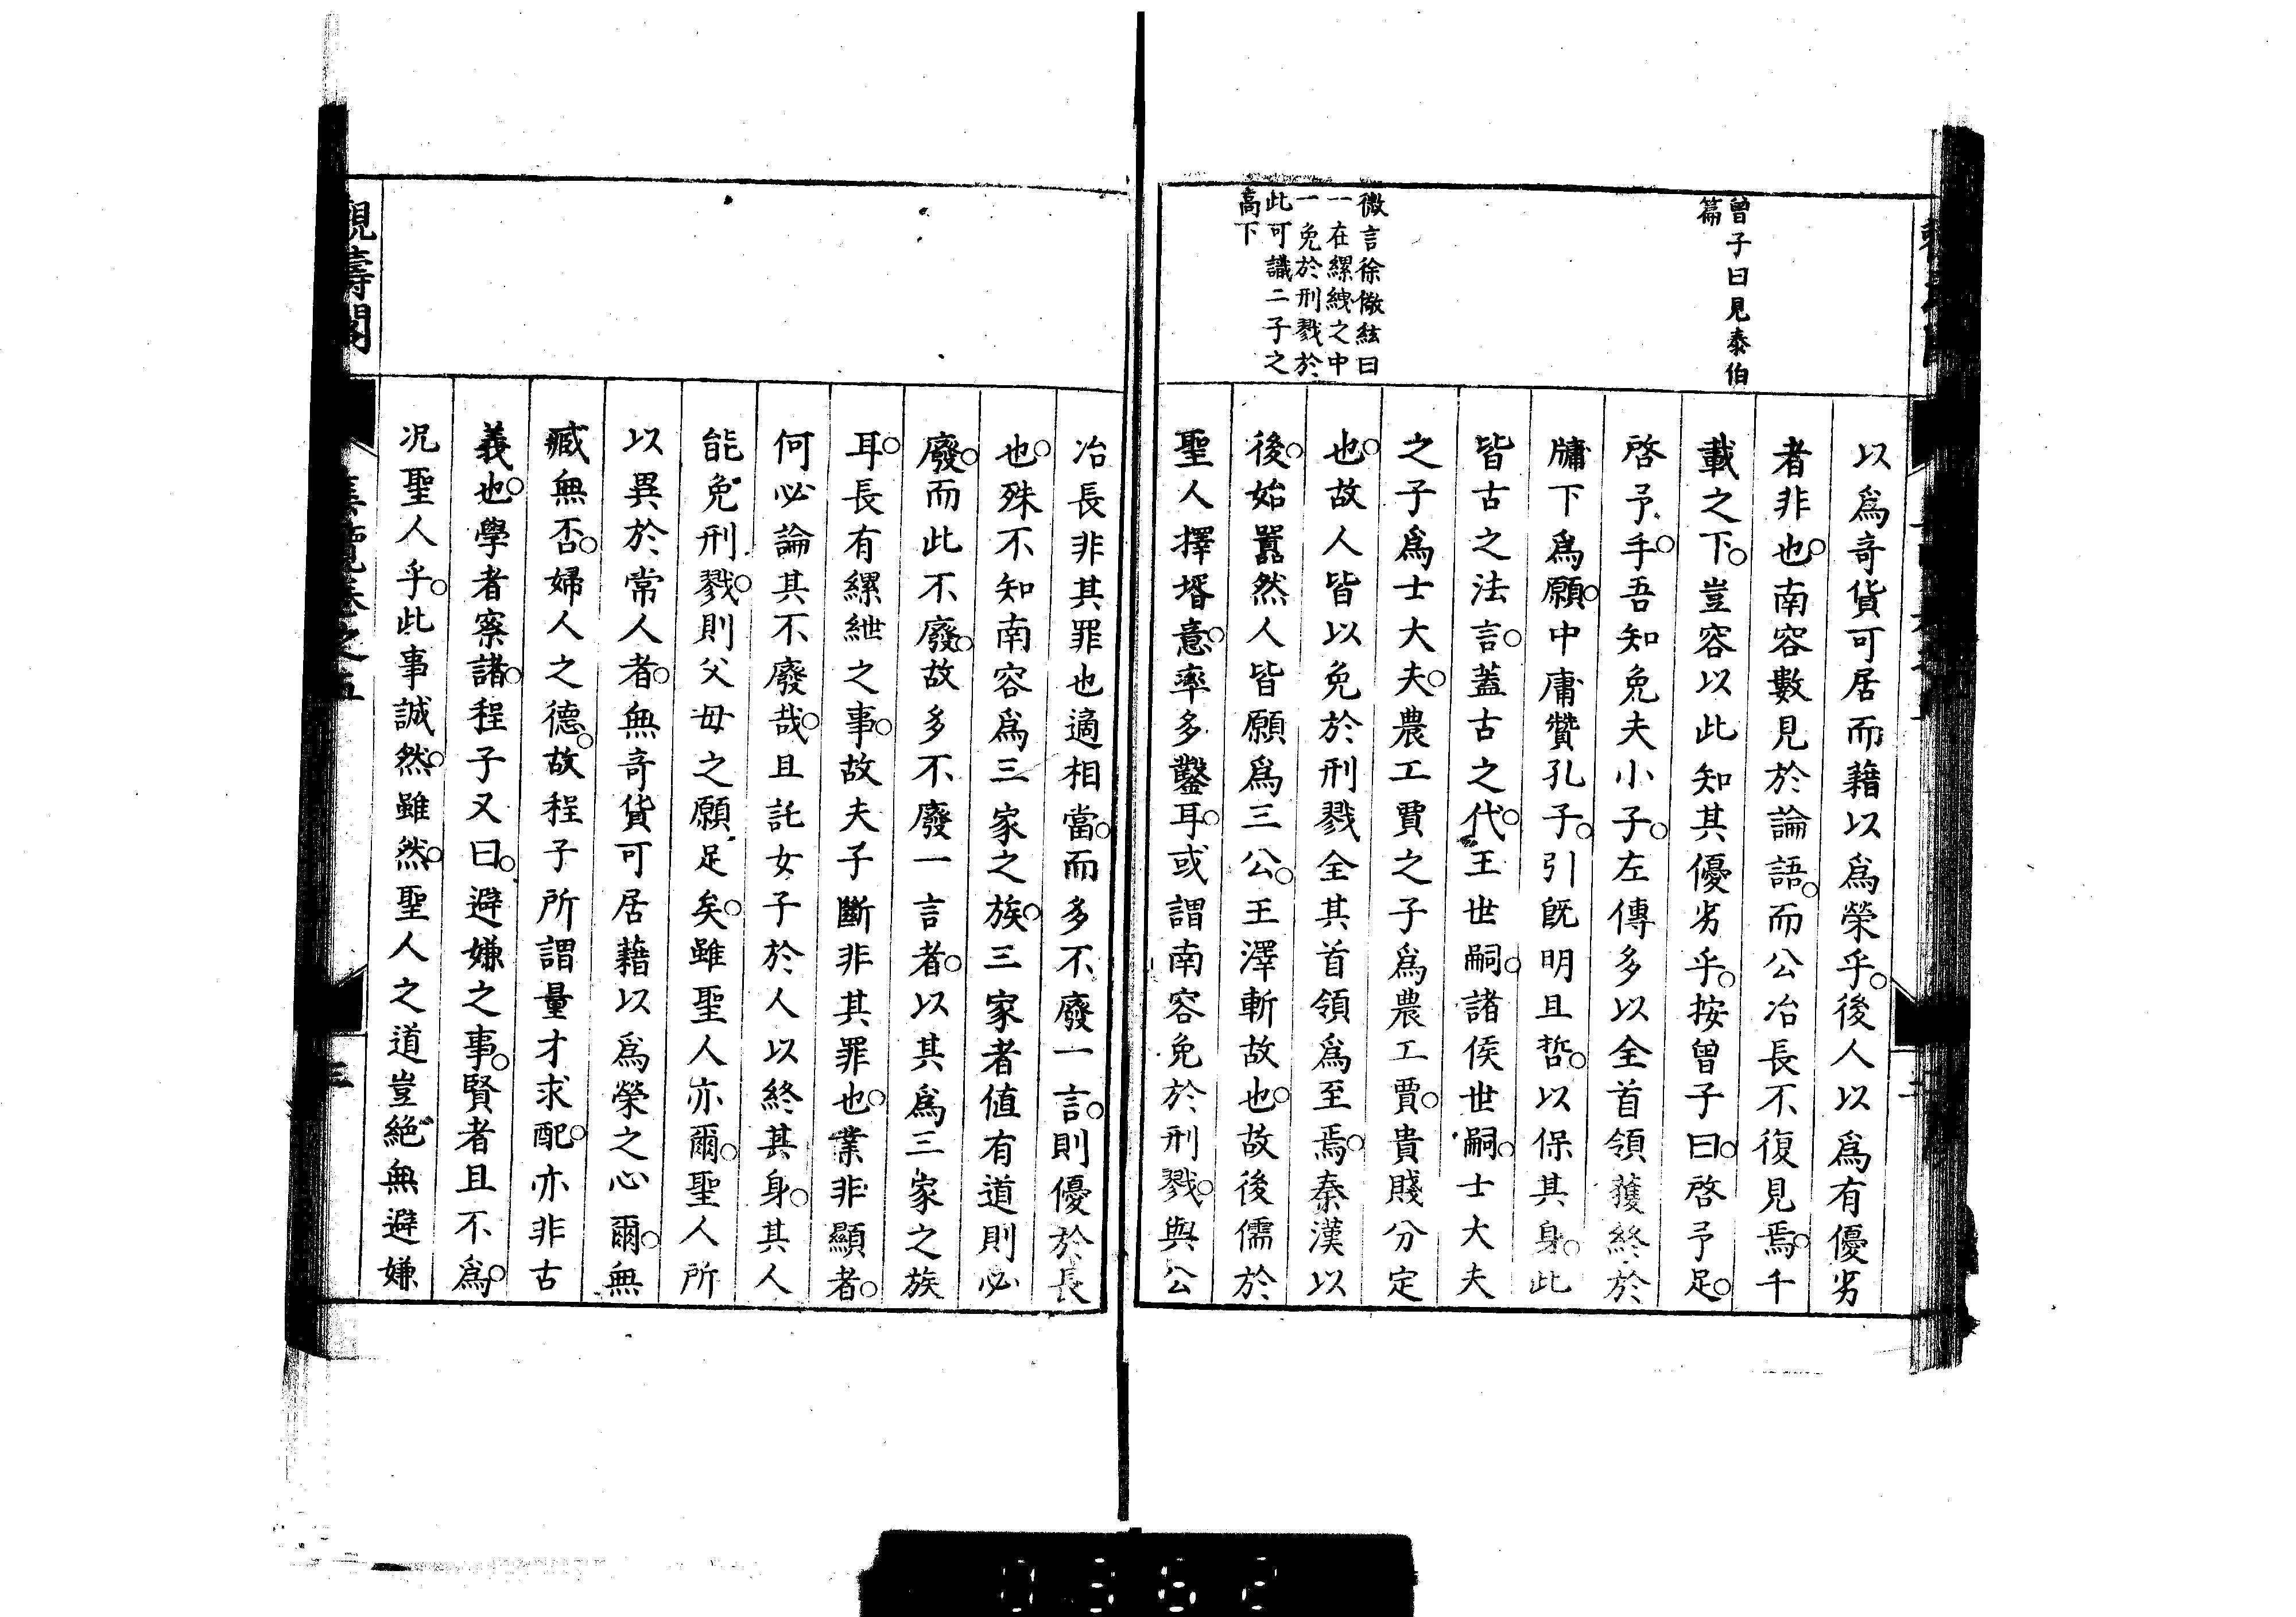 曾子曰見泰伯
篇
微言徐儆絃曰
一在縲絏之中
一免於刑戮於
此可議二子之
高下
以爲奇貨可居而藉以爲榮乎。後人以爲有優劣
者非也。南容數見於論語。而公冶長不復見焉。千
載之下。豈容以此知其優劣乎。按曾子曰。啓予足。
啓予手。吾知免夫小子。左傳多以全首領獲終於
牖下爲願。中庸贊孔子。引既明且哲。以保其身。此
皆古之法言。蓋古之代。王世嗣。諸侯世嗣。士大夫
之子爲士大夫。農工賈之子爲農工賈。貴賤分定
也。故人皆以免於刑戮全其首領爲至焉。秦漢以
後。始囂然人皆願爲三公。王澤斬故也。故後儒於
聖人擇壻意。率多鑿耳。或謂南容免於刑戮。與公
冶長非其罪也適相當。而多不廢一言。則優於長
也。殊不知南容爲三家之族。三家者值有道則必
廢。而此不廢。故多不廢一言者。以其爲三家之族
耳。長有縲紲之事。故夫子斷非其罪也。業非顯者。
何必論其不廢哉。且託女子於人以終其身。其人
能免刑戮。則父母之願足矣。雖聖人亦爾。聖人所
以異於常人者。無奇貨可居藉以爲榮之心爾。無
臧無否。婦人之德。故程子所謂量才求配。亦非古
義也。學者察諸。程子又曰。避嫌之事。賢者且不爲。
况聖人乎。此事誠然。雖然。聖人之道豈絕無避嫌
觀濤閣
覽卷之五
三